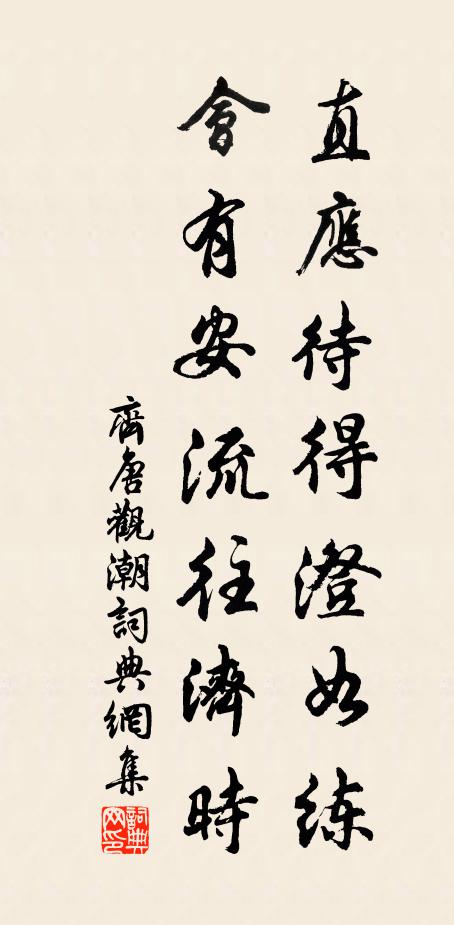 直應待得澄如练
會有安流往濟時
齊唐觀潮詞典網集
詞典网印